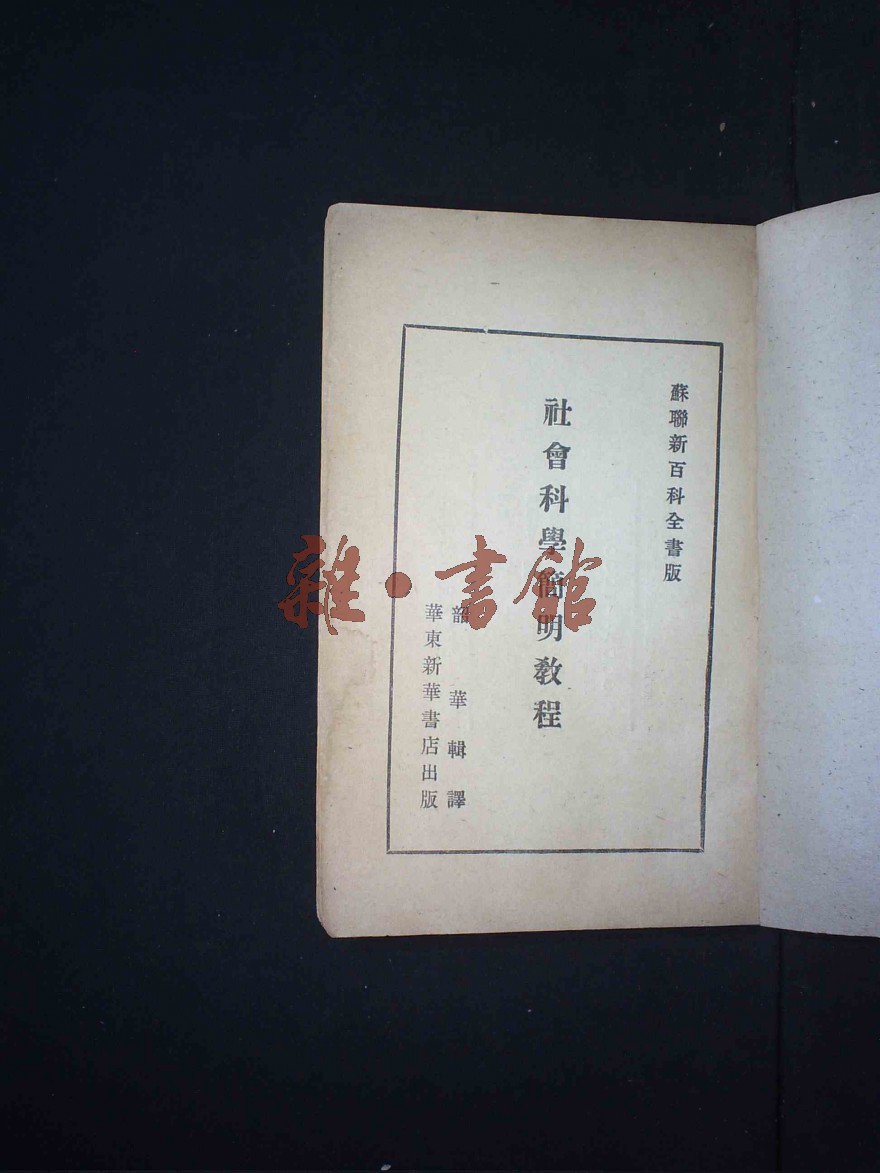 蘇聯新百科全書版
社會科學簡明教程
韶華輯譯
華東新華書店出版
雜·書館